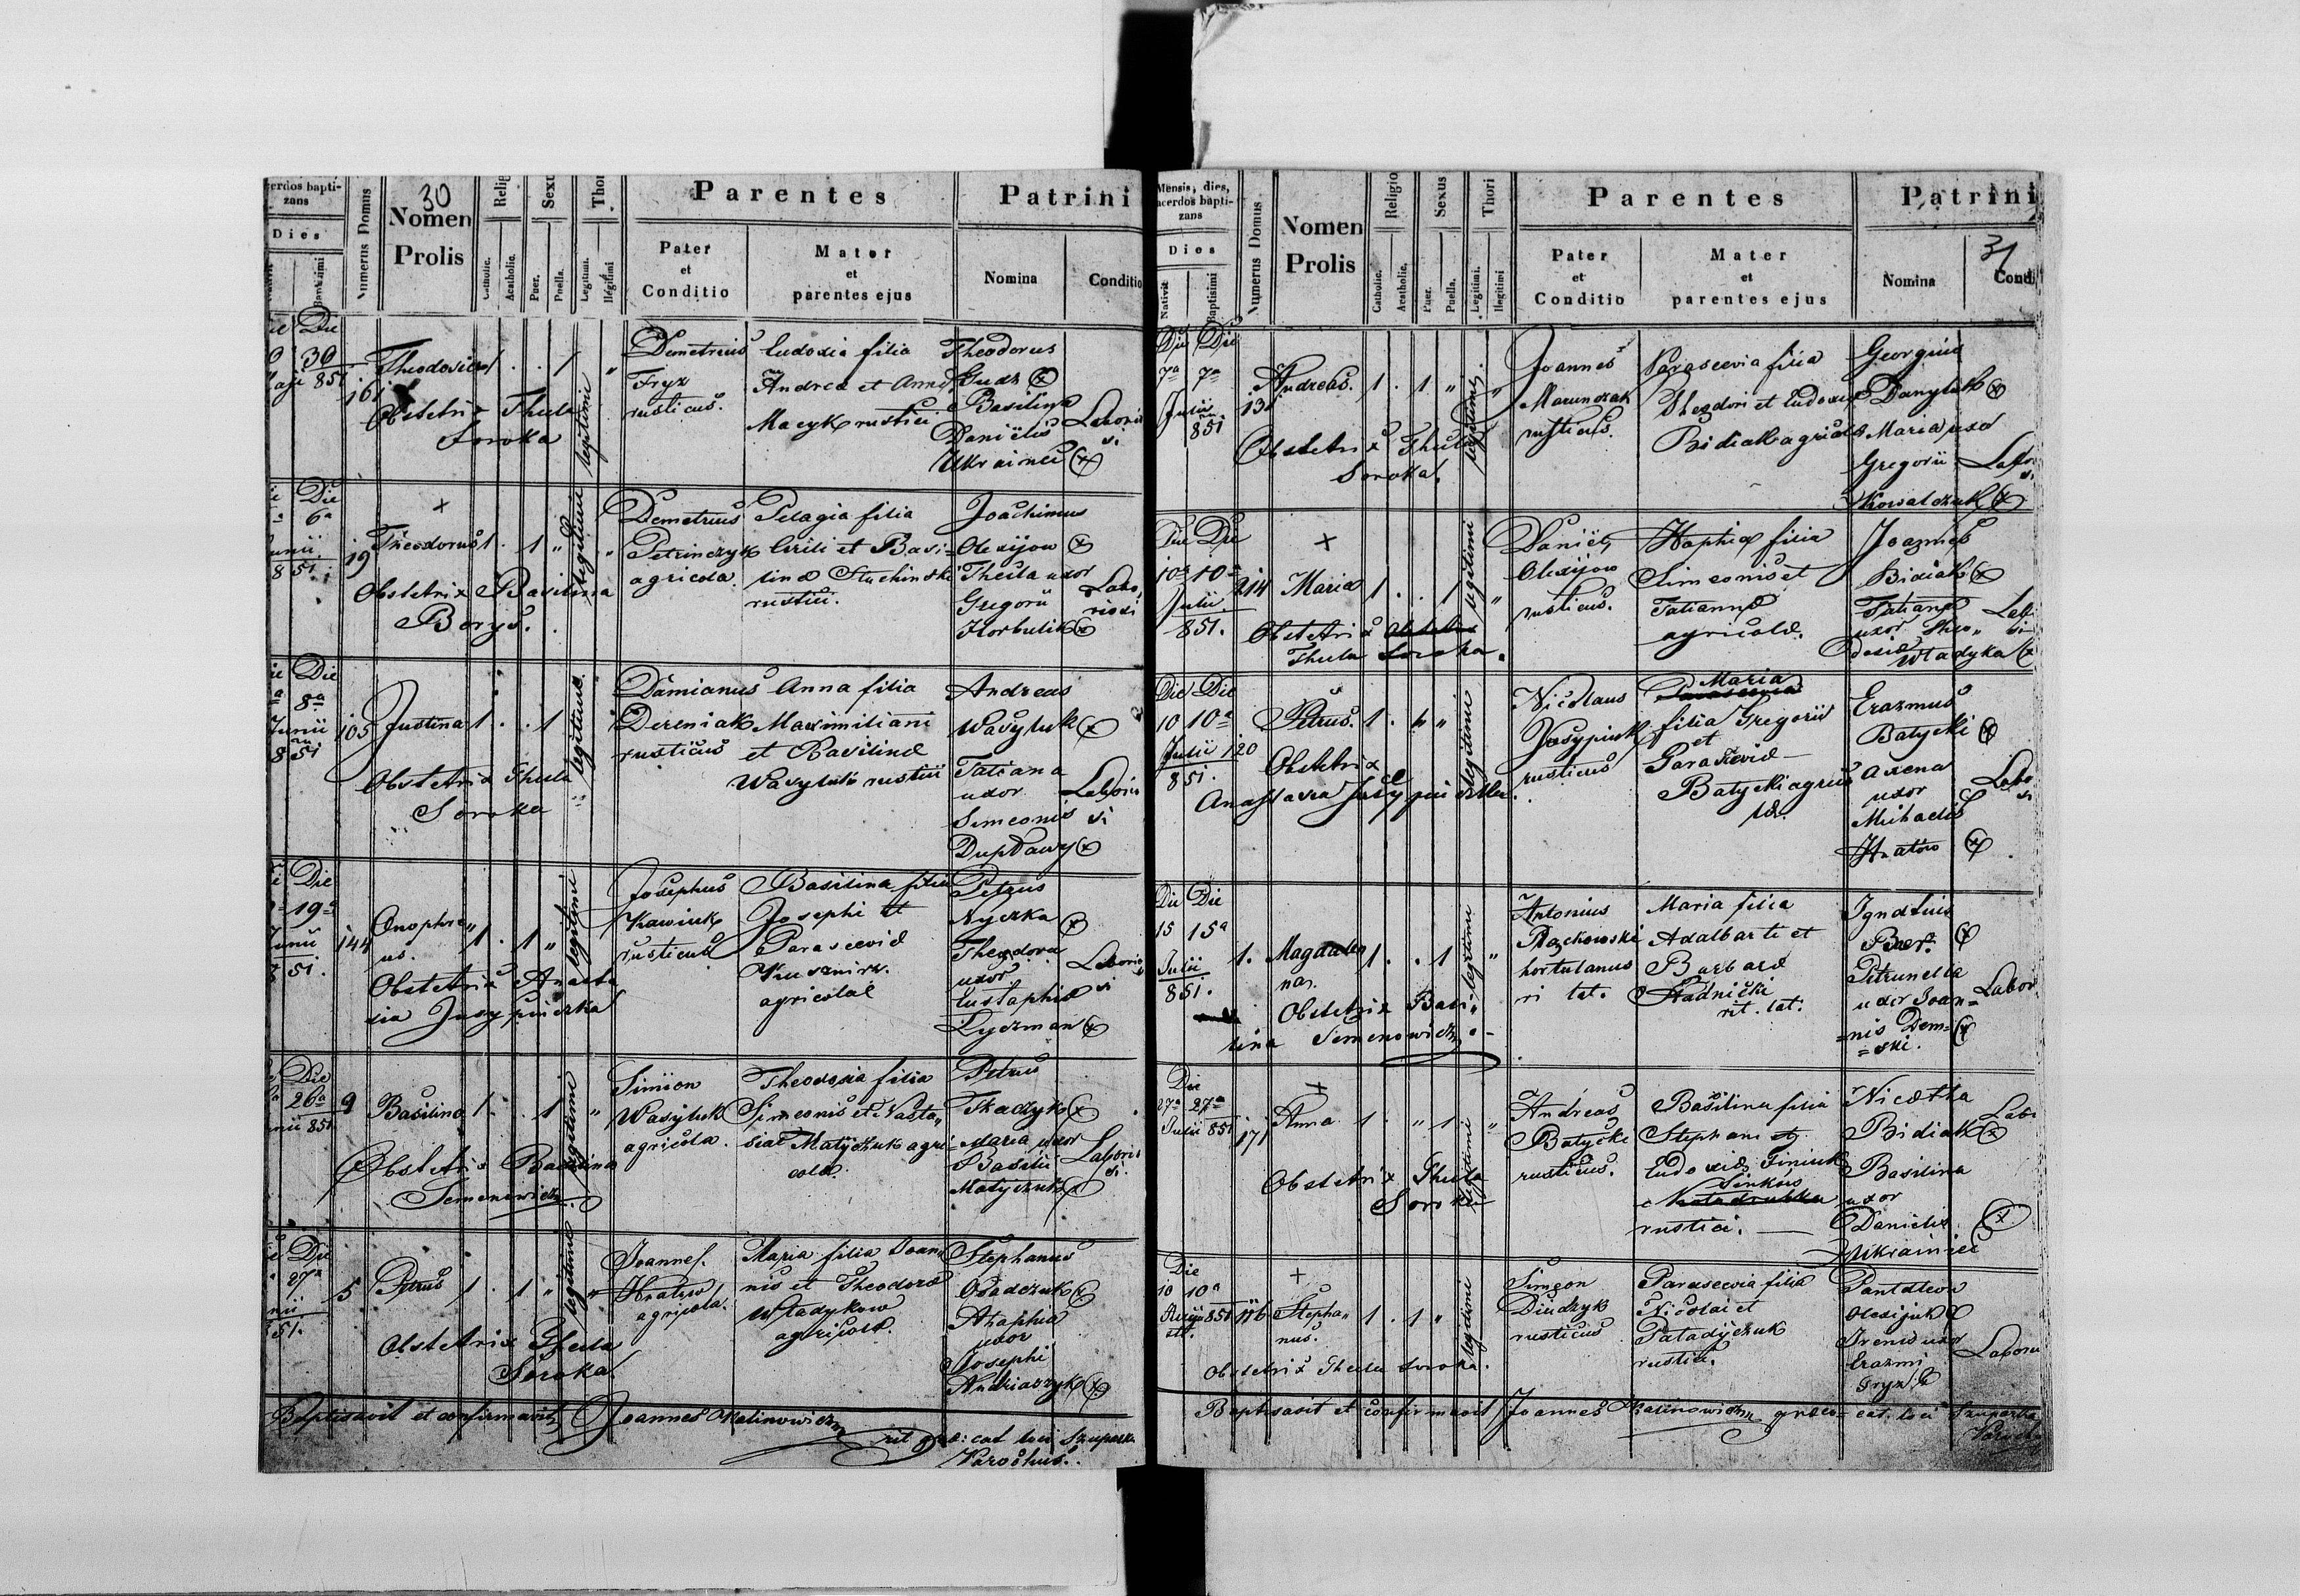 30
erdos bapti-
zans
Dies
Baptismi
Numerus Domus
Nomen
Prolis
Relig
Catholic.
Acatholic.
Sexu
Puer.
Puella.
Thor
Legitimi.
Illegitimi
Parentes
Pater
et
Conditio
Mater
et
parentes ejus
Patrini
Nomina
Conditio
Die
30
851
161
Theodosia 1 . . 1 "
Obstetrix Thecla
Soroka
legitimi
Demetrius
Fryz
rusticus.
Eudoxia filia
Andreæ et Annæ
Macyk rustici
Theodorus
Gudz
Basilina
Daniëlis
Ukrainec
Laborio
si
Die
6a
unii
851.
19
Theodorus 1 . 1 " "
Obstetrix Basilina
Borys.
legitimi
Demetrius
Petrinczyk
agricola.
Pelagia filia
Cirili et Basi-
linæ
rustici.
Joachimus
Olexijow
Thecla uxor
Gregorii
Horbulik
Labo,
riosi
Die
8a
Junii
851
105
Justina 1 . . 1
Obstetrix Thecla
Soroka
legitimi
Damianus
Dereniak
rusticus
Anna filia
Maximiliani
et Basilinæ
Wasyluk rustici
Andreas
Wasyluk
Tatiana
uxor
Simeonis
Laborio
si
Die
19a
Junii
851.
144
Onophri"
us. 1 . 1 "
Obstetrix Anasta
sia Jusypiuczka
legitimi
Josephus
Kawiuk
rusticus
Basilina filia
Josephi et
Parascevia
Kusznirz.
agricolæ
Petrus
Nyczka
Theodora
uxor
Eustaphia
Lyczman
Laborio
si
Die
26a
nii 851
9
Basilina 1 . . 1 "
Obstetrix Basilina
Semenowicz
legitimi
Simeon
Wasyluk
agricola.
Theodosia filia
Simeonis et Nasta"
siae Matyczuk agri
colæ.
Petrus
Tkaczyk
Maria uxor
Basilii
Matyczuk
Laborio
si.
Die
27a
nii
51.
5
Petrus 1 . 1 " "
Obstetrix Thecla
Soroka
legitimi
Joannes.
Hratow
agricola.
Maria filia Joan"
nis et Theodoræ
Wladykow
agricolæ.
Stephanus
Osadczuk
Ahaphia
uxor
Josephi
Andriaszyk
Baptisavit et confirmavit Joannes Kalinowicz
rit græ: cat loci Szuparka
Parochus.
31
Mensis, dies,
acerdos bapti-
zans
Dies
Nativit
Baptismi
Numerus Domus
Nomen
Prolis
Religio
Catholic.
Acatholic.
Sexus
Puer.
Puella.
Thori
Legitimi.
Illegitimi
Parentes
Pater
et
Conditio
Mater
et
parentes ejus
Patrini
Nomina
Condi
Die Die
7a 7a
Julii
851
13
Andreas. 1 . 1 " "
Obstetrix Thecla
Soroka.
legitimi
Joannes
Marunczak
rusticus.
Parascevia filia
Theodori et Eudoxiæ
Bidiak agricolæ
Georgius
Danyluk
Maria uxor
Gregorii
Kowalczuk
Labo
si
Die Die
10a 10a
Julii
851.
214
Maria 1 . . 1 "
Obstetrix
Thecla Soroka.
legitimi
Daniël
Olexijow
rusticus.
Haphia filia
Simeonis et
Tatiannæ
agricolæ.
Joannes
Bidiak
Tatiana
uxor Theo"
dosii
Wladyka
Labo
si
Die Die
10 10a
Julii
851.
120
Petrus. 1 . 1 "
Obstetrix
Anastasia Jusypiuczka.
legitimi
Nicolaus
Jusypiuk
rusticus
Maria
filia Gregorii
et
Paraxeviæ
Batycki agrico
læ.
Erazmus
Batycki
Axena
uxor
Michaelis
Hratow
Labo
si
Die Die
15 15a
Julii
851.
1.
Magdale
na. 1 . . 1 "
Obstetrix Basi"
lina Semenowicz.
legitimi
Antonius
Raczkowski
hortulanus
ri lat.
Maria filia
Adalberti et
Barbaræ
Stadnicki
rit. lat.
Ignatius
Petrunella
uxor Joan=
nis Dem=
=ski.
Labor
Die
27a 27a
Julii 851
171
Anna 1 . " 1 "
Obstetrix Thecla
Soroka
legitimi
Andreas
Batycki
rusticus.
Basilina filia
Stephani et
Eudoxiæ Finiuk
rustici.
Nicetha
Bidiak
Basilina
uxor
Danielis
Ukrainiec
Labo
Die
10 10a
851
176
Stepha"
nus. 1 . 1 "
Obstetrix Thecla Soroka.
legitimi
Simeon
Diudzyk
rusticus
Parascevia filia
Nicolai et
Paladyczuk
rustici.
Pantaleon
Olexijuk
Irena uxor
Erazmi
Fryz
Laborio
Baptisavit et confirmavit Joannes Kalinowicz græco cat. loci Szuparka
Paroch